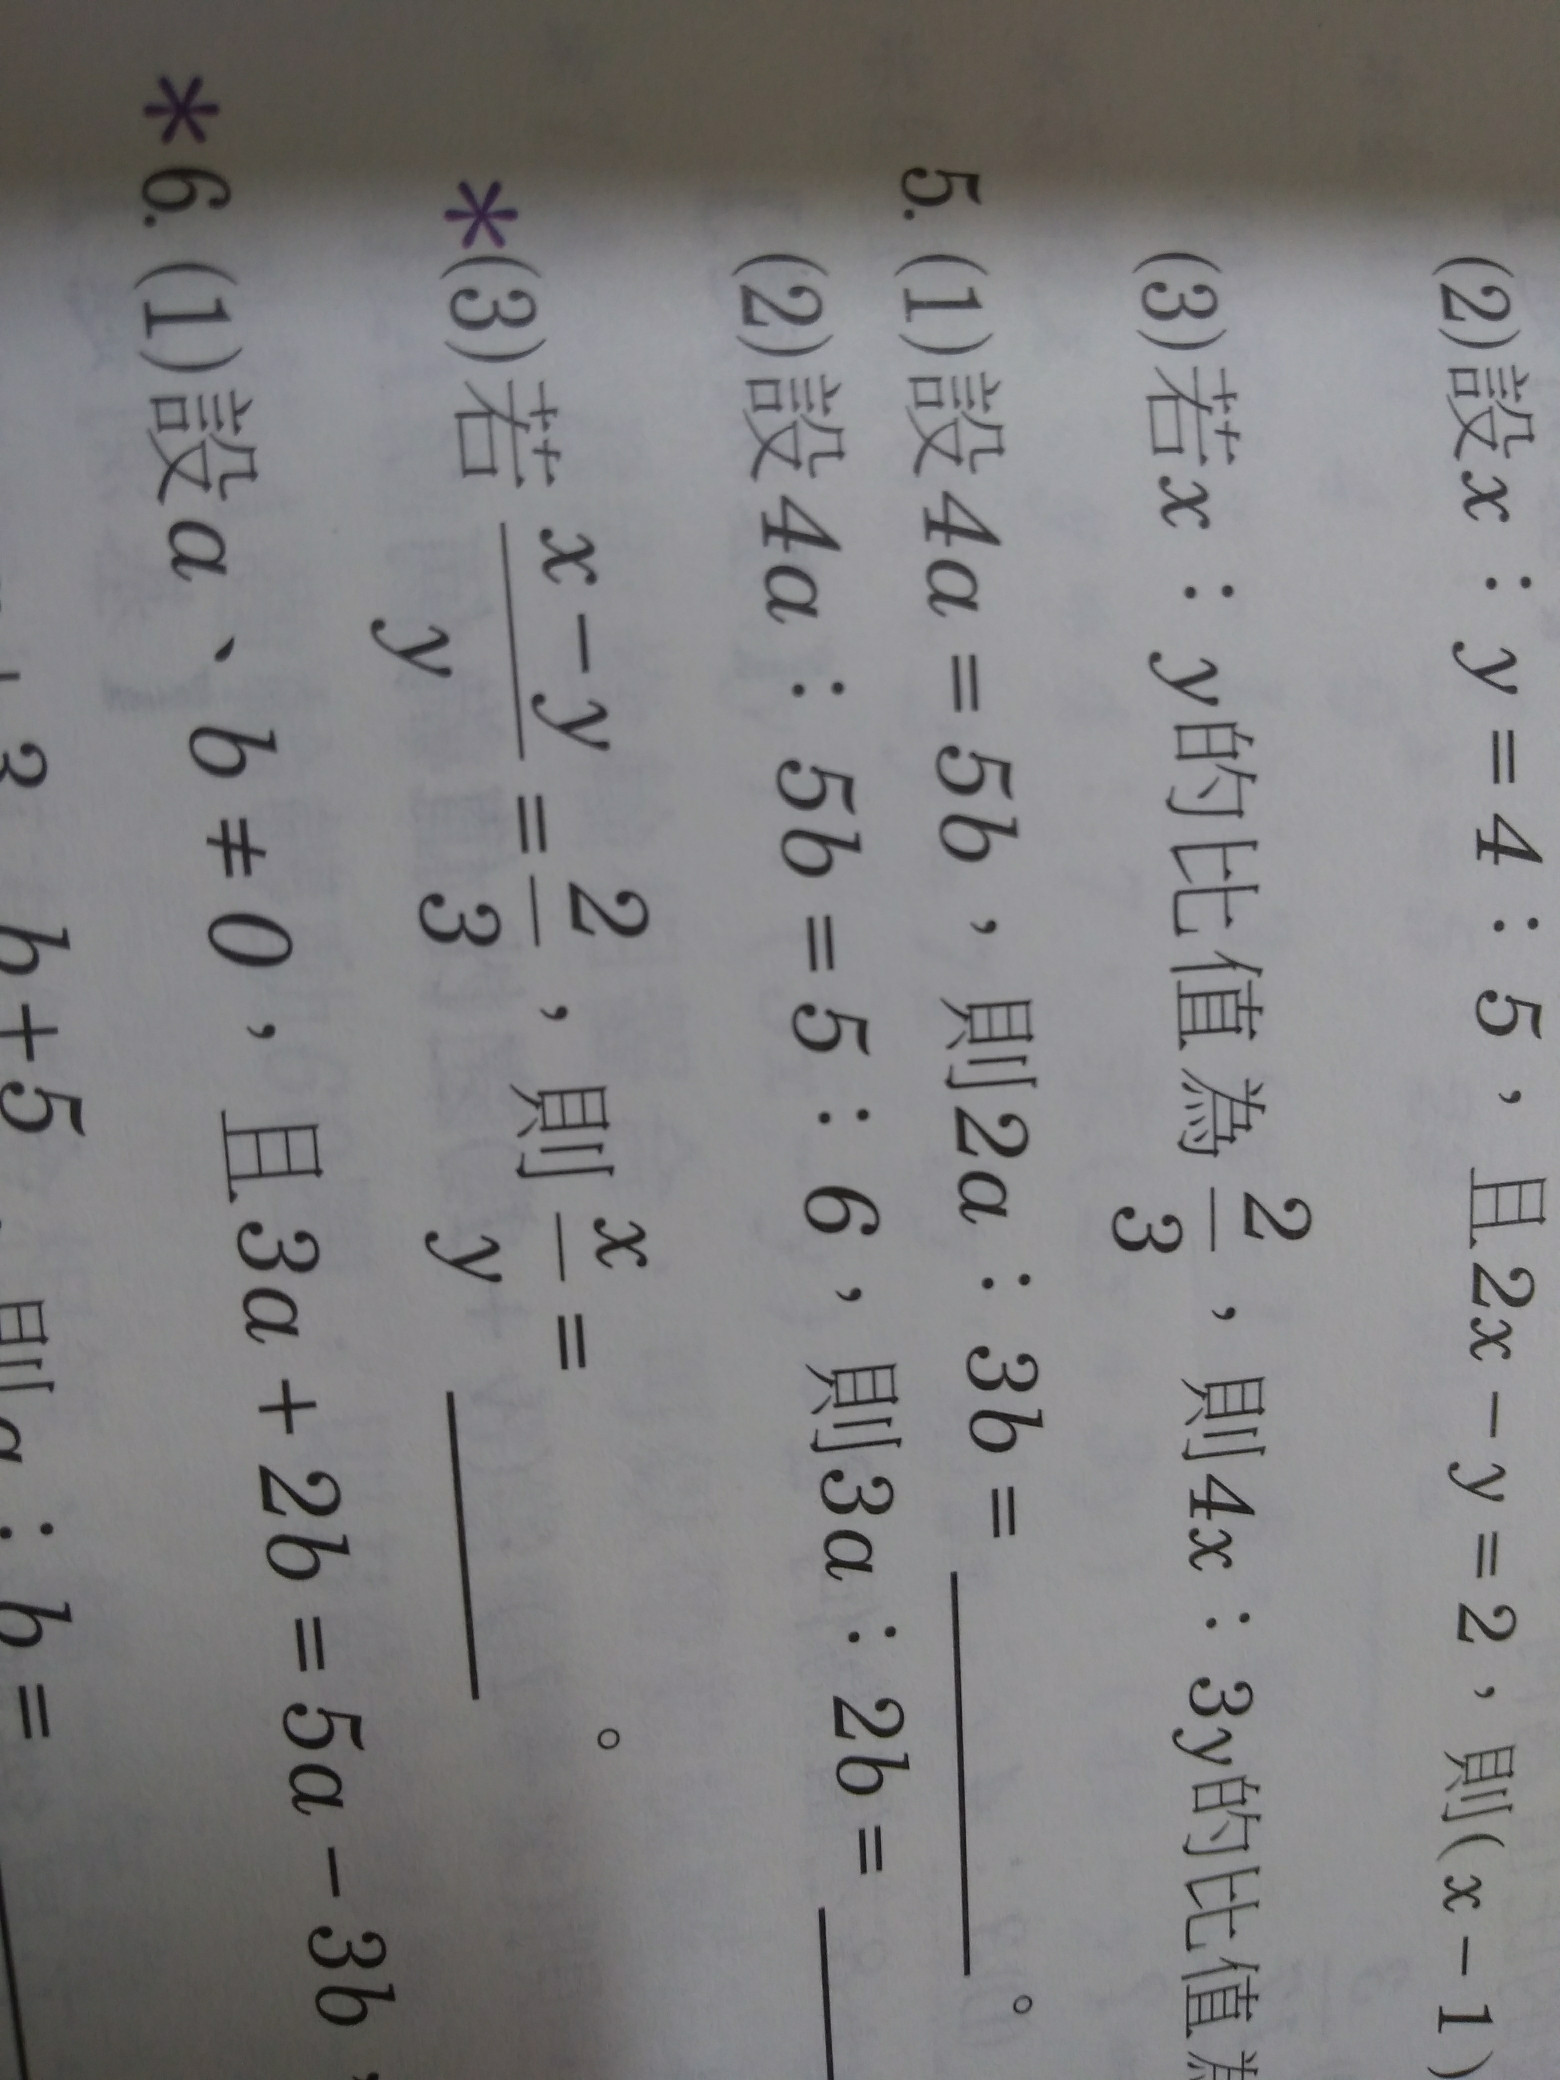 (2)設x：y=4：5，且2x-y=2，則(x-1)
(3)若x：y的比值為2/3，則4x：3y的比值為
5.(1)設4a=5b，則2a：3b=______。
(2)設4a：5b=5：6，則3a：2b=______
*(3)若(x-y)/y=2/3，則x/y=______。
*6.(1)設a、b≠0，且3a+2b=5a-3b，
3 b+5，則a：b=